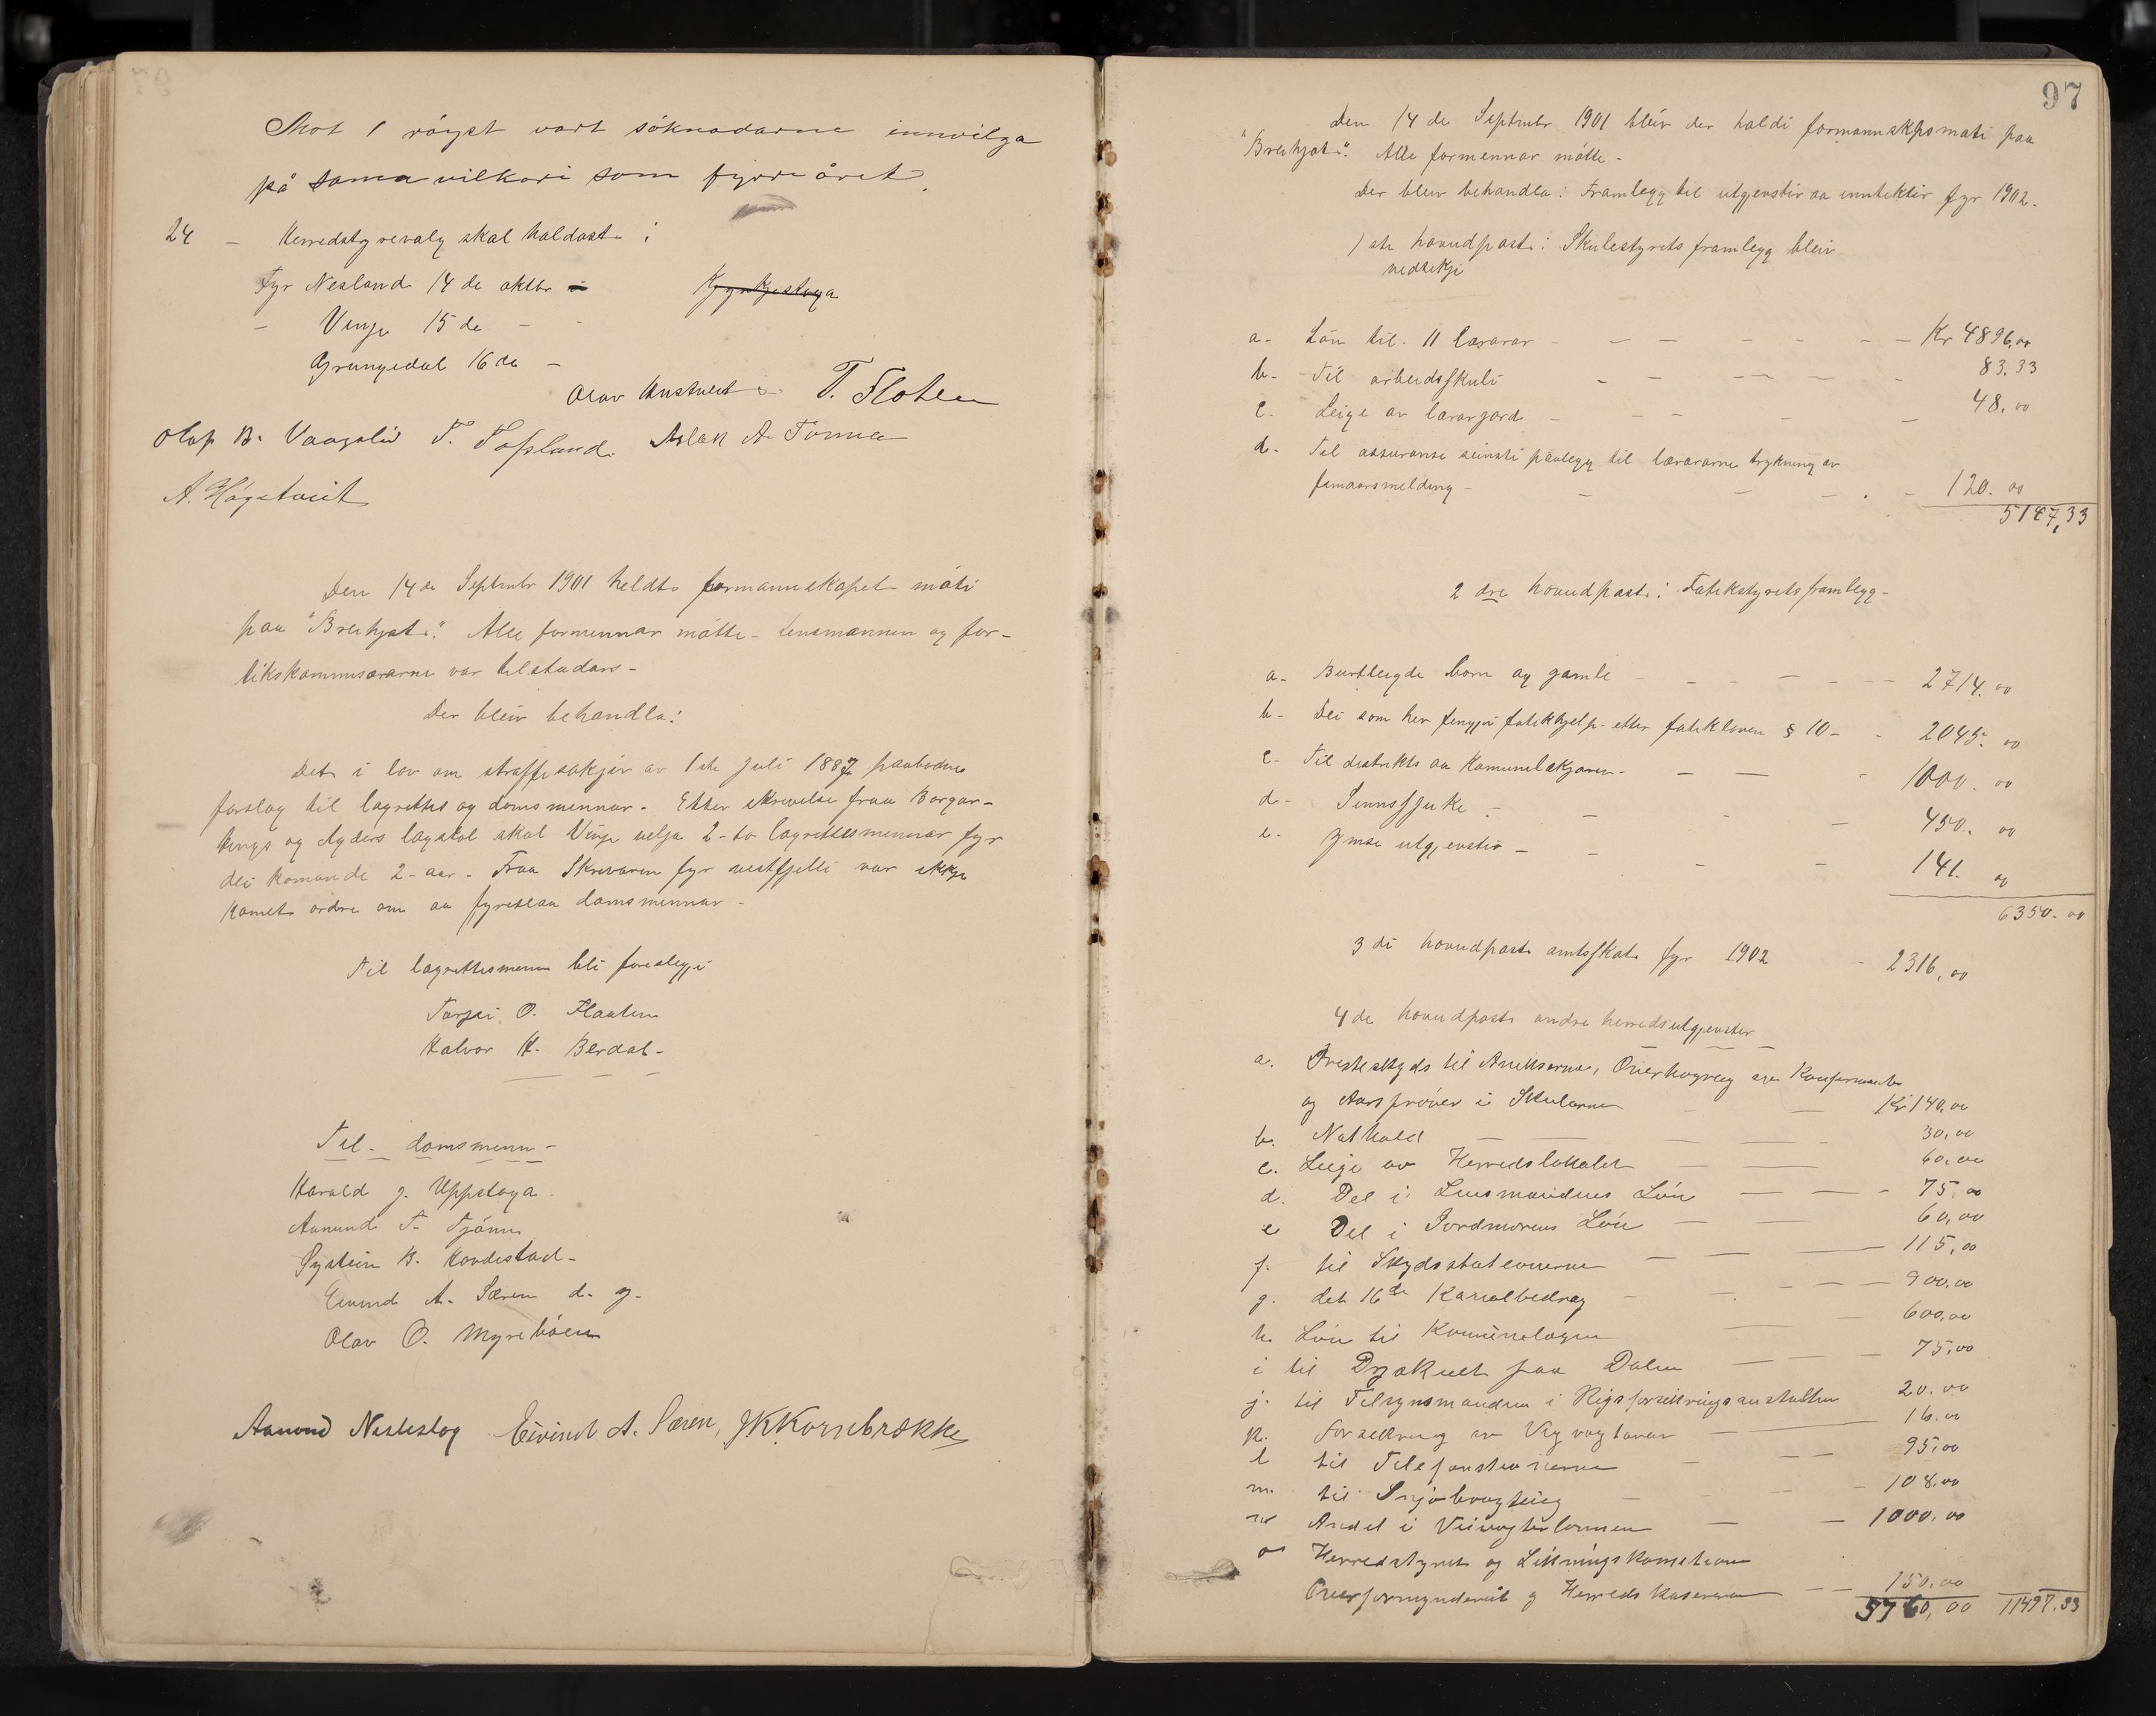 Mot 1 röyst vart söknadarne innvilga
på sama vilkori som fyrre året.
24 - Herredstyrevalg skal haldast i
Fyr Nesland 14 de oktbr
- Vinje 15 de - -
Grungedal 16 de -
Olav T. Floten
Olaf B. Vaagslid T. Aslak A.
A. Högetveit
Den 14 de Septmbr 1901 heldt formannskapet möti
paa "Breihjat". Alle formennar mötte - Lensmannen og for-
likskommisærarne var tilstadars -
Der bleiv behandla:
Det i lov om straffesakjir av 1ste juli 1887 paabodne
forslag til lagrettes og domsmennar. Etter skrivelse fraa Borgar-
tings og Agders lagstol skal Vinje velja 2-to lagrettesmennar fyr
dei komande 2-aar - Fraa Skrivaren fyr vestfjelli var ikkje
komet ordre om aa fyreslaa domsmennar -
Til lagrettesmenn bli foreslegji
Tarjei O. Flaaten
Halvor H. Berdal -
Til domsmenn -
Harald J. Uppstoga
Aamund T. Tjönn
Øystein B. Kovdestad -
Eivind A. Særen d. y.
Olav O. Myreböen
Aamund Neslestog Eivind A. Særen, JKKornbrække
97
Den 14 de Septmbr 1901 bleiv der haldi formannskpsmöti paa
"Breihjat". Alle formennar mötte -
Der bleiv behandla: Framlegg til utgjenstir aa inntektir fyr 1902.
1 ste hovudpost: Skulestyrets framlegg bleiv
vedtekji
a - Lön til 11 lærarar - Kr 4896,00
b - Til arbeidsskuli 83.33
c - Leige av lærargard - 48,00
d - Til assuranse paalegg til lærararne trykning av
femaarsmelding - 120.00
5147,33
2 dre hovudpost: Fatikstyrets framlegg -
a - Burtleigde born og gamle 2714.00
b - Dei som hev fengji fatikhjelp etter fatikloven § 10 - 2045.00
c - Til distrikts aa Kommunelækjaren - 1000.00
d - Sinnssjuke - 450.00
e - Ymse utgjenstir - 141.00
6350.00
3 di hovudpost amtsskat fyr 1902 - 2316,00
4 de hovudpost andre herredsutgjenster
a. Presteskyds til Anneksarne, Overhøyring av Konfirmanter
og Aarsprøver i Skularne Kr 140,00
b. Nathald 30,00
c. Leige av Herredslokalet 60,00
d. Del i Lensmandens Løn 75,00
e Del i Jordmorens Løn 60,00
f. til Skydsstationerne 115,00
g. det 16de 900,00
h. Løn til 600,00
i til paa Dalen 75,00
j. til Tilsynsmanden i Rigsforsikringsanstalten 20.00
k. Forsikring av 16.00
l til Telefonstationerne 95,00
m. til Snjøbrøyting 108,00
n Andel i Veivogterlønnen 1000,00
o Herredstyret og Likningskomitéen
Overformynderiet og Herredskasseraren 150,00
3760,00 11497.33